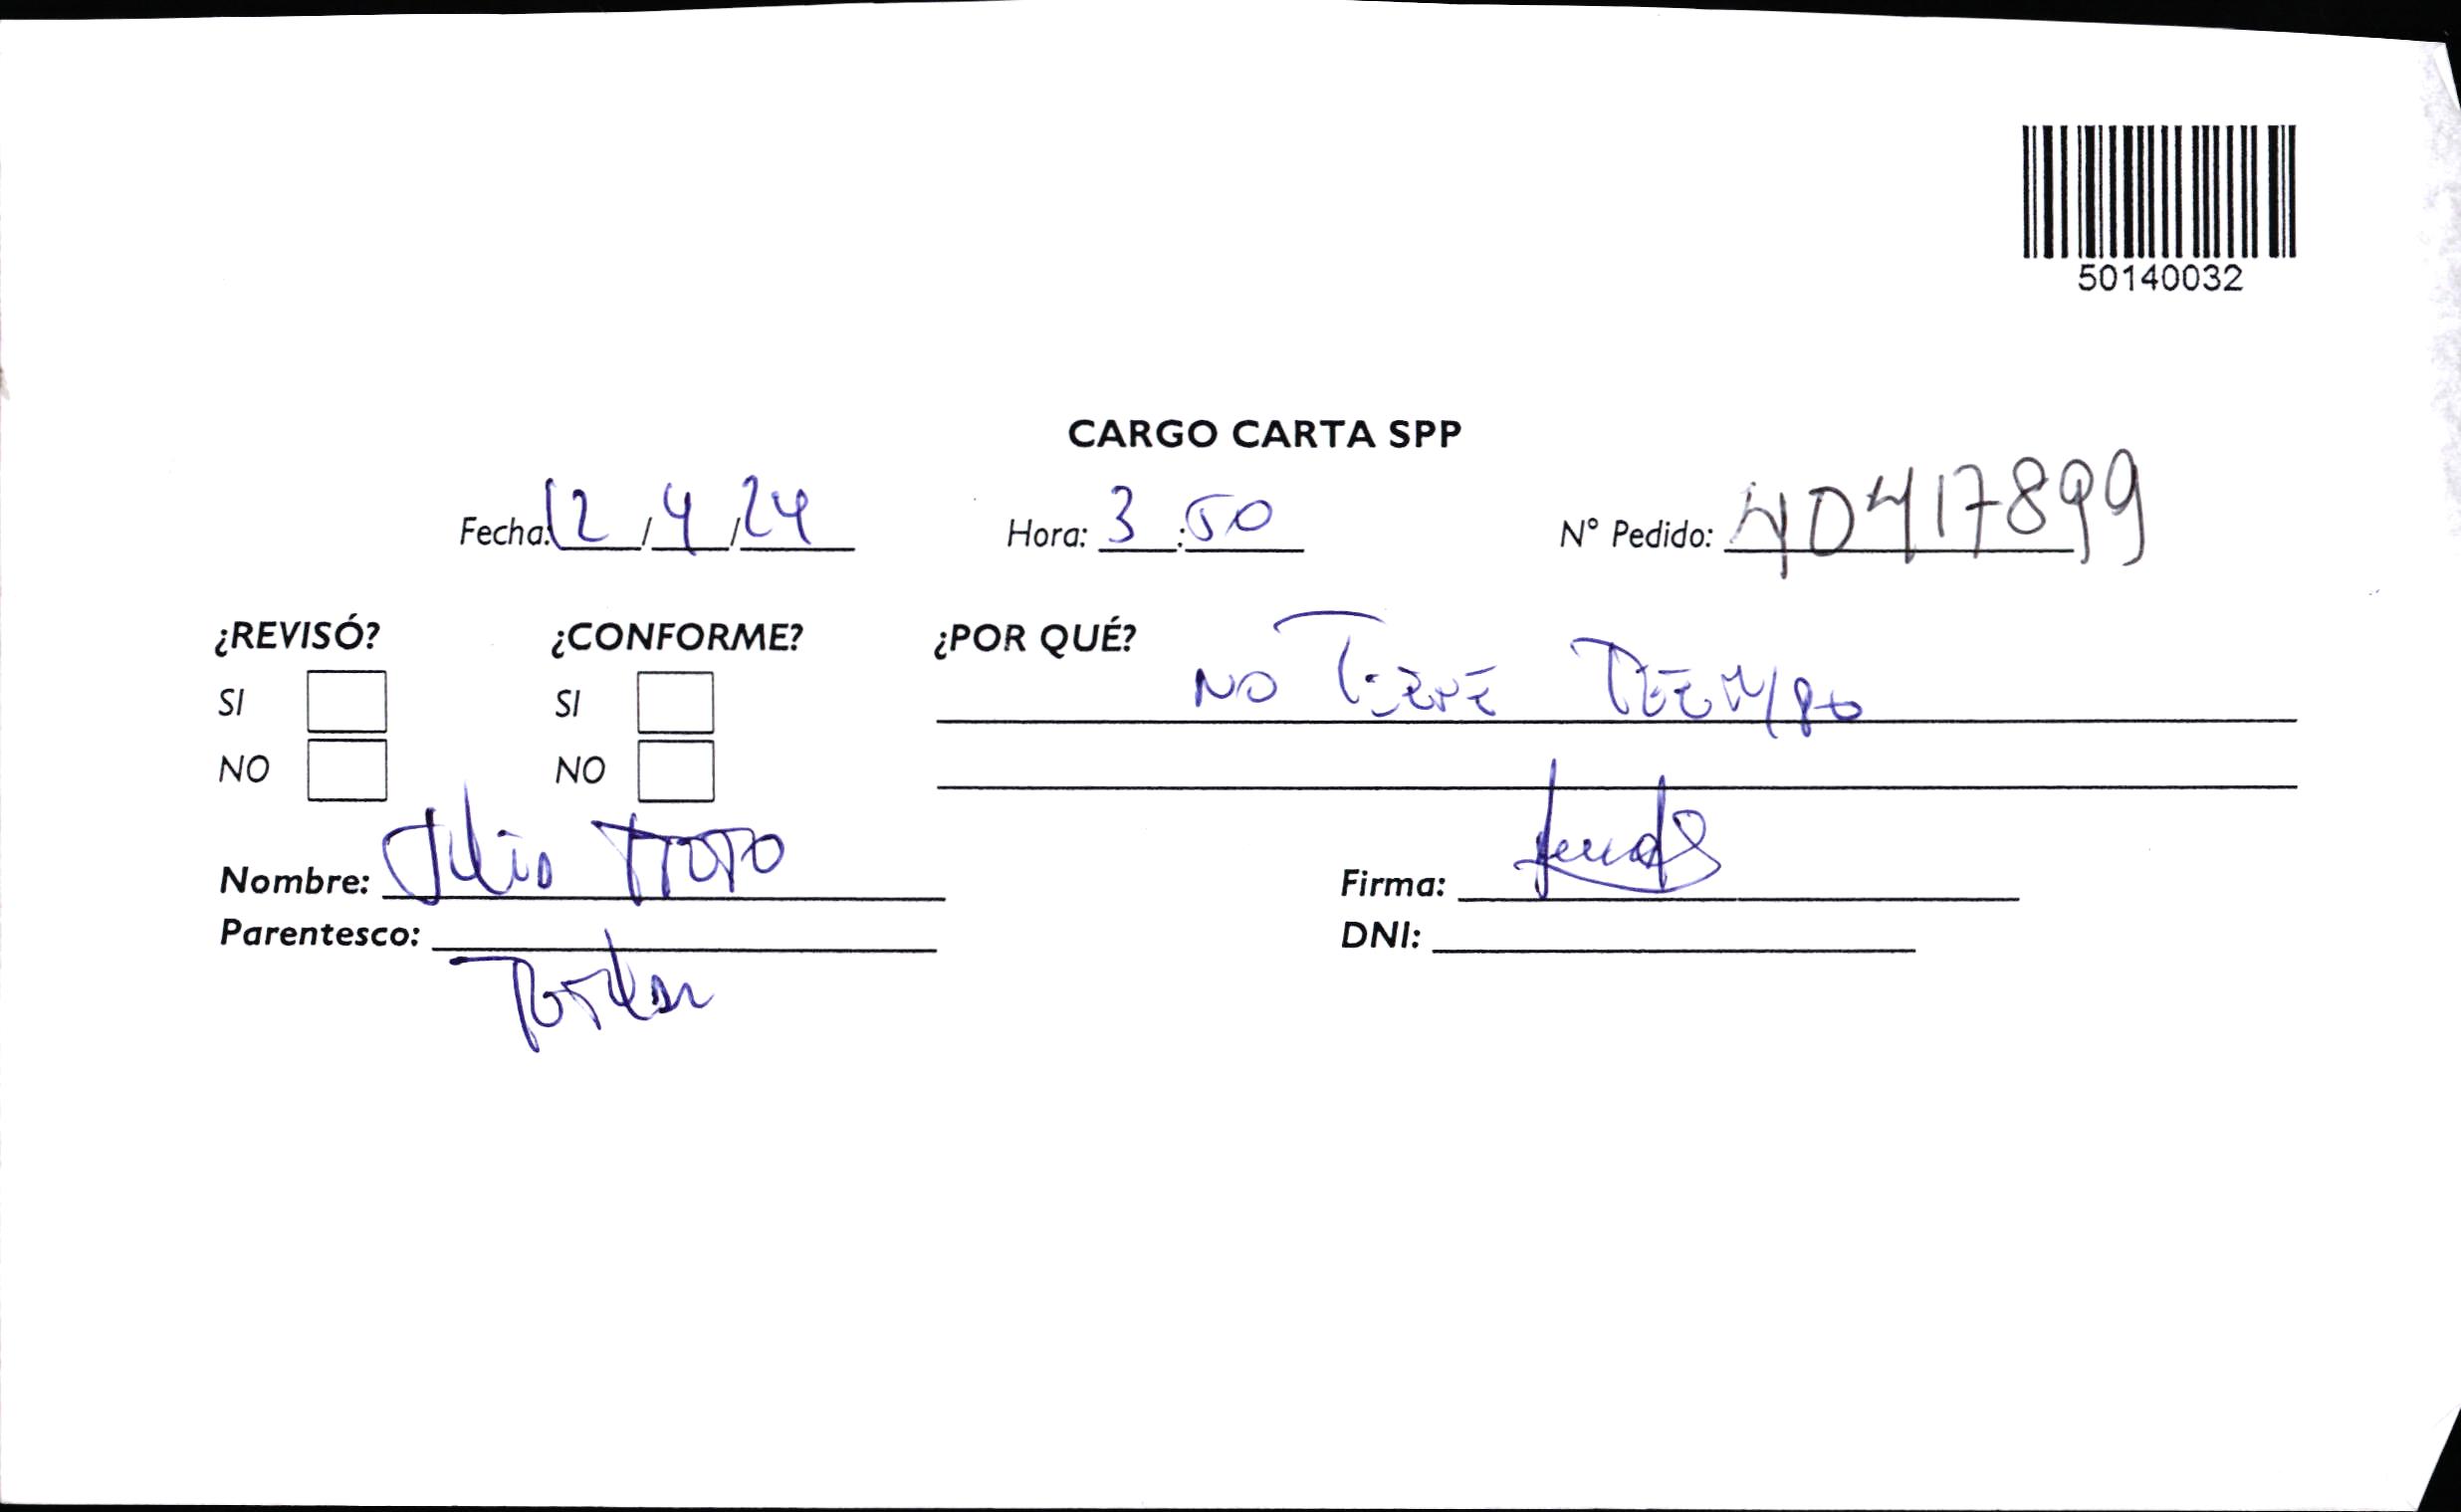 50140032
CARGO CARTA SPP
Fecha: 12 / 4 / 24 Hora: 3 : 50 N° Pedido: 40417899
¿REVISÓ? ¿CONFORME? ¿POR QUÉ?
SI SI NO TIENE TIEMPO
NO NO
Nombre: Julio
Parentesco:
Firma:
DNI: